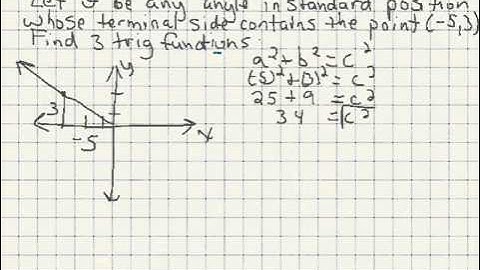 Let θ be any angle in standard position
whose terminal side contains the point (-5,3)
Find 3 trig functions.
a² + b² = c²
(5)² + (3)² = c²
25 + 9 = c²
34 = √c²
y
3
x
-5